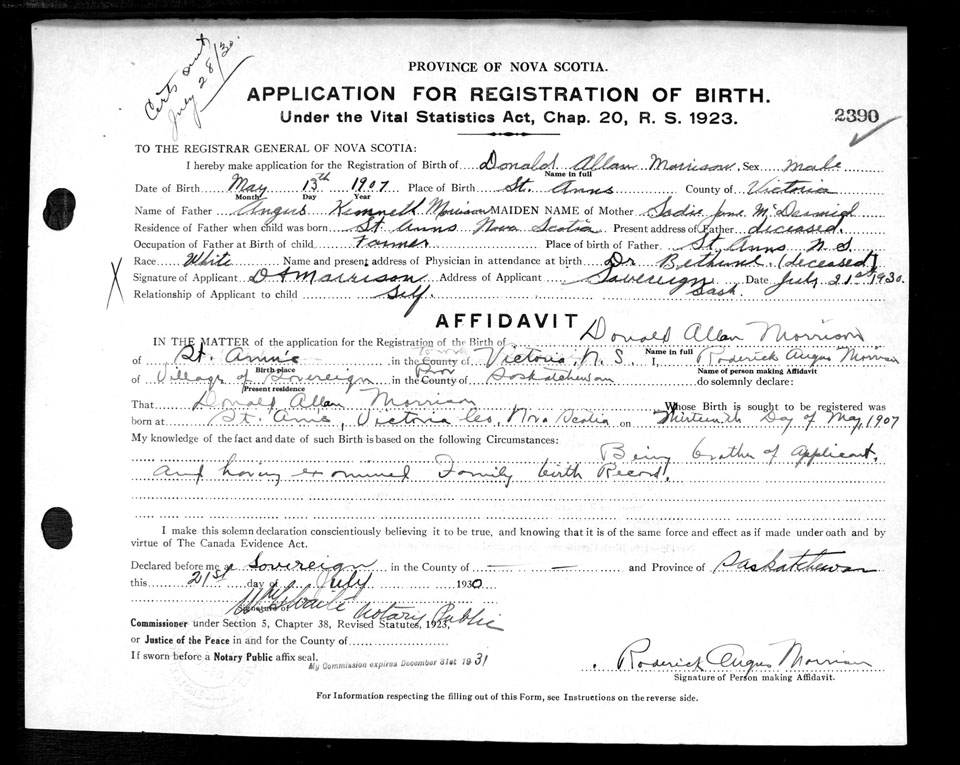 Certs out
July 28/30.
PROVINCE OF NOVA SCOTIA.
APPLICATION FOR REGISTRATION OF BIRTH.
Under the Vital Statistics Act, Chap. 20, R. S. 1923.
2390
TO THE REGISTRAR GENERAL OF NOVA SCOTIA:
I hereby make application for the Registration of Birth of Donald Allan Morrison, Sex Male
Name in full
Date of Birth May 13th 1907 Place of Birth St. Anns County of Victoria
Month Day Year
Name of Father Angus Kenneth Morrison MAIDEN NAME of Mother Sadie Jane McDermid
Residence of Father when child was born St Anns Nova Scotia Present address of Father deceased.
Occupation of Father at Birth of child Farmer Place of birth of Father St. Anns N.S.
Race White Name and present address of Physician in attendance at birth Dr Bethune (deceased)
X Signature of Applicant D A Morrison Address of Applicant Sovereign Sask. Date July 21st 1930.
Relationship of Applicant to child Self.
AFFIDAVIT
IN THE MATTER of the application for the Registration of the Birth of Donald Allan Morrison
Name in full
of St. Ann's in the County of Victoria, N. S. I, Roderick Angus Morrison
Birth place Name of person making Affidavit
of Village of Sovereign in the County of Prov Saskatchewan do solemnly declare:
Present residence
That Donald Allan Morrison Whose Birth is sought to be registered was
born at St. Ann's, Victoria Co, Nova Scotia on Thirteenth Day of May, 1907
My knowledge of the fact and date of such Birth is based on the following Circumstances:
Being brother of Applicant.
and having examined Family birth Record.
I make this solemn declaration conscientiously believing it to be true, and knowing that it is of the same force and effect as if made under oath and by
virtue of The Canada Evidence Act.
Declared before me at Sovereign in the County of — — and Province of Saskatchewan
this 21st day of July 1930
Signature of Notary Public
Commissioner under Section 5, Chapter 38, Revised Statutes, 1923,
or Justice of the Peace in and for the County of
If sworn before a Notary Public affix seal.
My Commission expires December 31st 1931
Roderick Angus Morrison
Signature of Person making Affidavit.
For Information respecting the filling out of this Form, see Instructions on the reverse side.